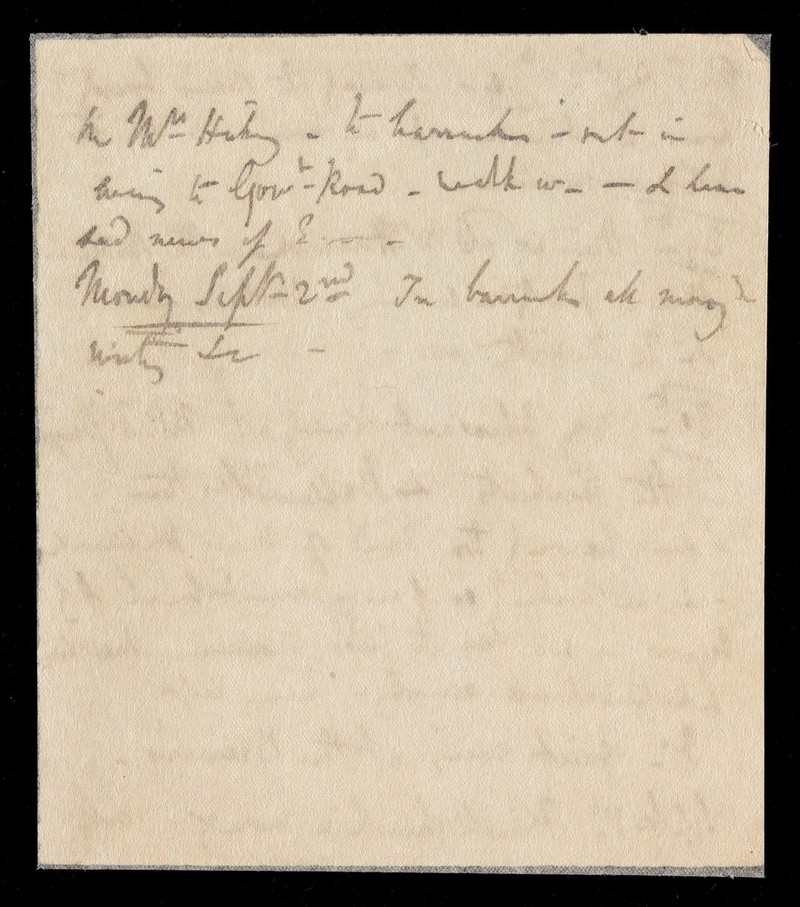 Mrs H – to barracks – out in
evening to Govt Road – walk w – – & hear
sad news of E —— –
Monday Sept 2nd In barracks all morng &
writing &c –